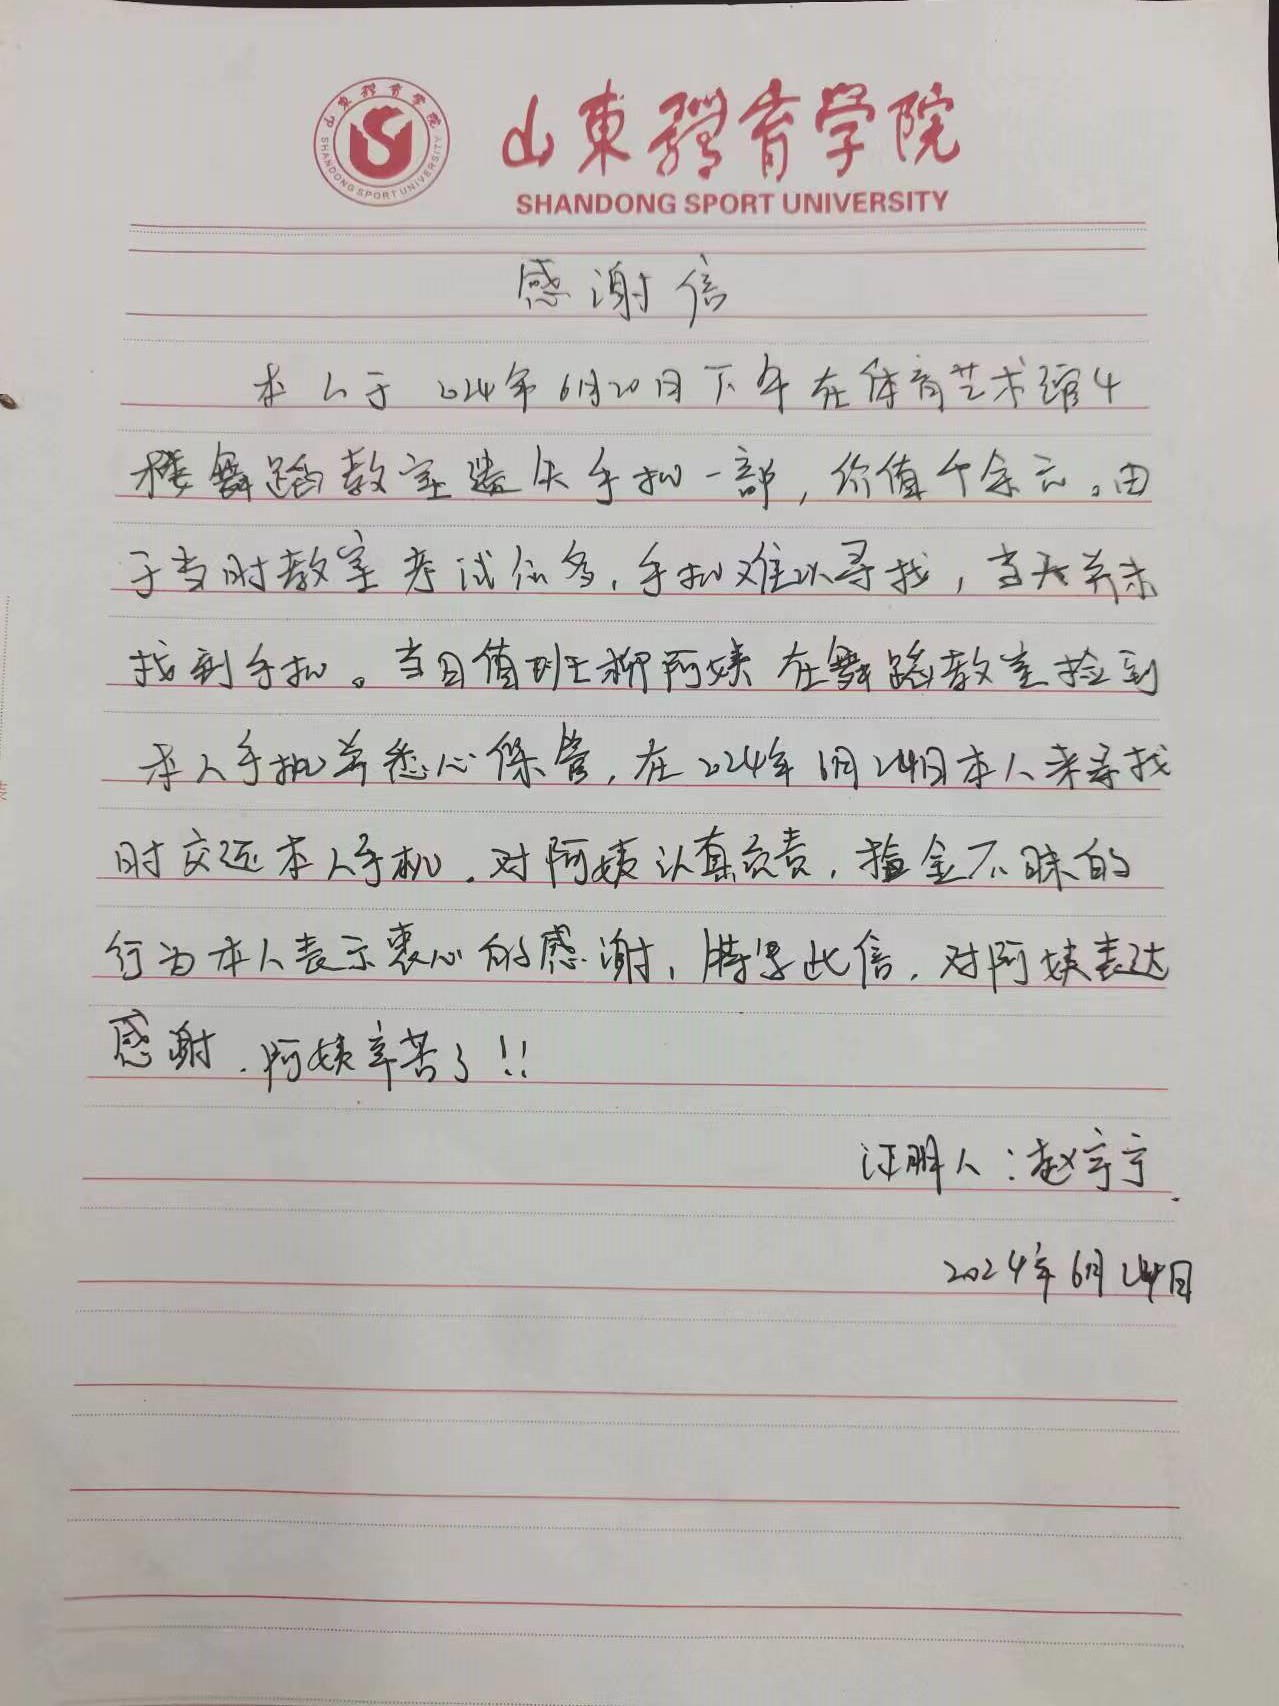 山東體育學院
SHANDONG SPORT UNIVERSITY
山東體育學院
SHANDONG SPORT UNIVERSITY
感谢信
本人于2024年6月20日下午在体育艺术馆4
楼舞蹈教室遗失手机一部，价值个余元。由
于当时教室考试位多，手机难以寻找，当天并未
找到手机。当日值班柳阿姨在舞蹈教室捡到
本人手机并悉心保管，在2024年6月24日本人来寻找
时交还本人手机。对阿姨认真负责，拾金不昧的
行为本人表示衷心的感谢，特写此信，对阿姨表达
感谢，阿姨辛苦了!!
证明人：赵宁宁
2024年6月24日